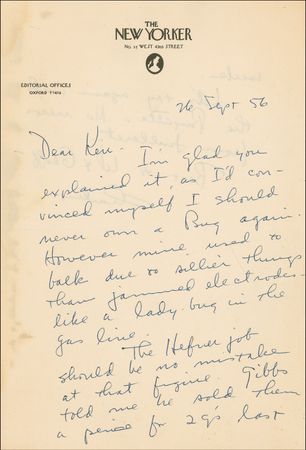 THE
NEW YORKER
No. 25 WEST 43RD STREET
EDITORIAL OFFICES
OXFORD 7-1414
26 Sept 56
Dear Ken - I'm glad you
explained it, as I'd con-
vinced myself I should
never own a Bug again.
However mine used to
balk due to sillier things
than jammed electrodes -
like a lady bug in the
gas line.
The Hefner job
should be no mistake
at that figure. Gibbs
told me he sold them
a peice for 2 g's last